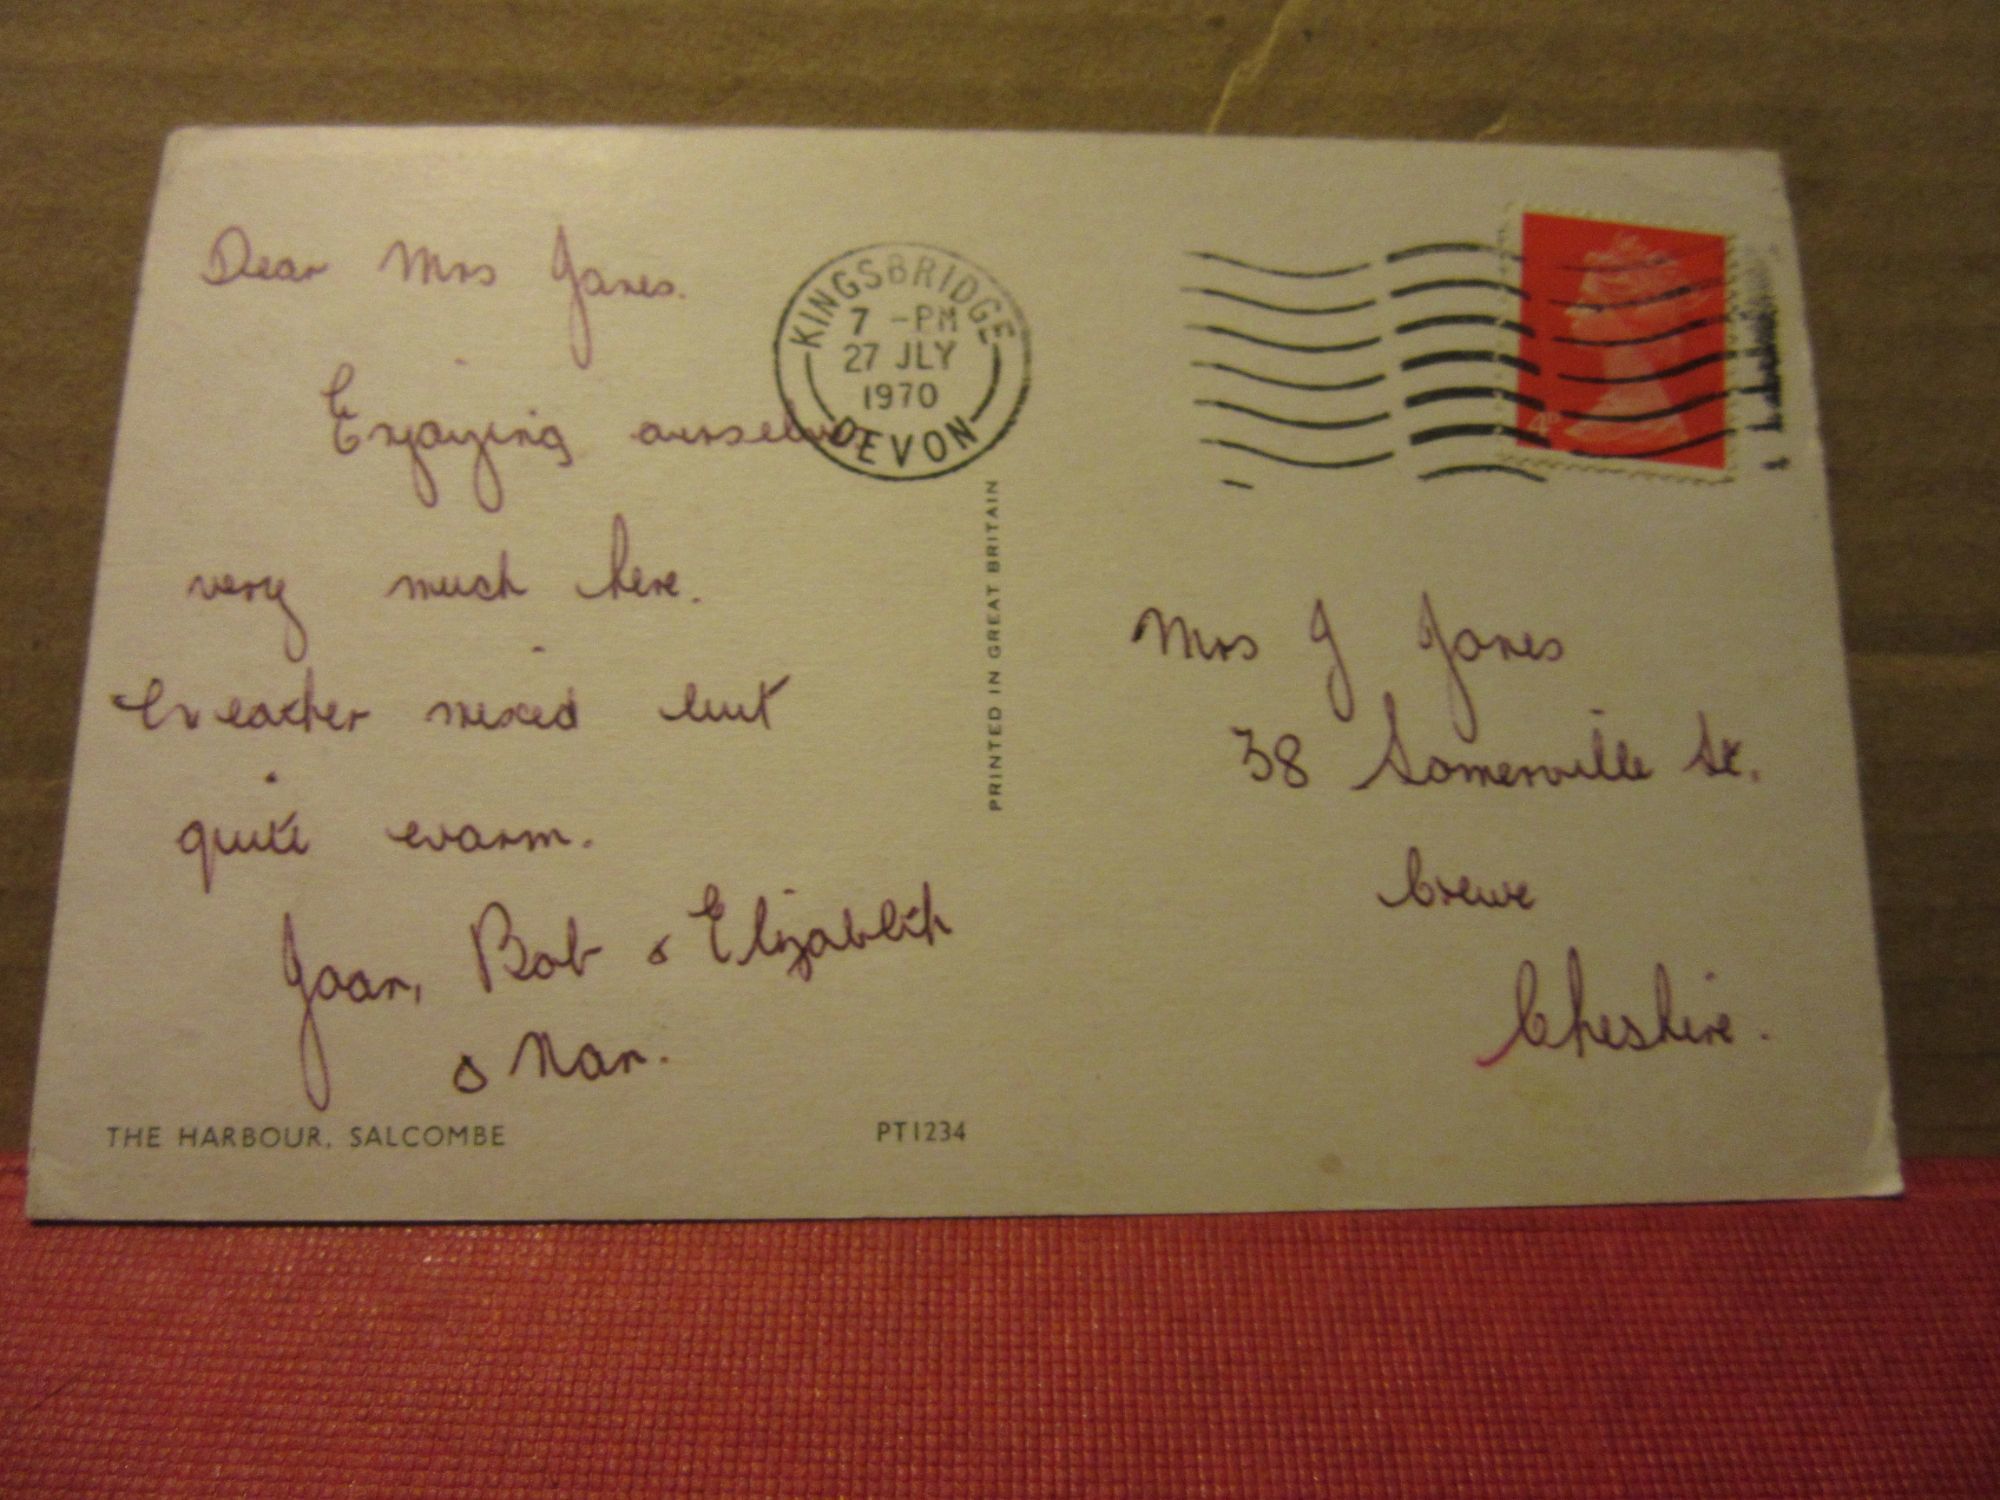 Dear Mrs Jones.
Enjoying ourselves
very much here.
Weather mixed but
quite warm.
Joan, Bob & Elizabeth
& Nan.
THE HARBOUR, SALCOMBE
PT1234
PRINTED IN GREAT BRITAIN
KINGSBRIDGE
7 -PM
27 JLY
1970
DEVON
4
Mrs J Jones
38 Somerville St.
Crewe
Cheshire.